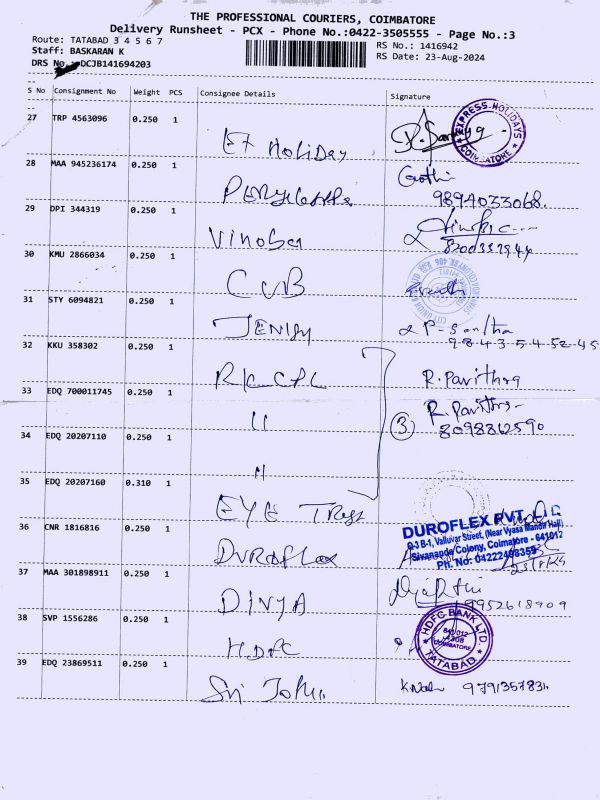 THE PROFESSIONAL COURIERS, COIMBATORE
Delivery Runsheet - PCX - Phone No.:0422-3505555 - Page No.:3
Route: TATABAD 3 4 5 6 7
Staff: BASKARAN K
DRS No.:DCJB141694203
RS No.: 1416942
RS Date: 23-Aug-2024
S No Consignment No Weight PCS Consignee Details Signature
27 TRP 4563096 0.250 1 Ex Holiday
EXPRESS HOLIDAYS COIMBATORE
28 MAA 945236174 0.250 1
9894033068.
29 DPI 344319 0.250 1 Vinoba
30 KMU 2866034 0.250 1 CUB
31 STY 6094821 0.250 1
P-Santha
9-8-4-3-5-4-52-45
32 KKU 358302 0.250 1 R. Pavithra
33 EDQ 700011745 0.250 1 11 R. Pavithra
③ 8098862590
34 EDQ 20207110 0.250 1 11
35 EDQ 20207160 0.310 1 EYE Trust
36 CNR 1816816 0.250 1 Duroflex
DUROFLEX PVT. LTD
D-3 B-1, Valluvar Street, (Near Vyasa Mandir Hall)
Sivananda Colony, Coimatore - 641012
Ph. No: 04222498359
37 MAA 301898911 0.250 1 DIVYA
9952618909
38 SVP 1556286 0.250 1 HDFC
HDFC BANK LTD TATABAD
COIMBATORE
39 EDQ 23869511 0.250 1 Sri